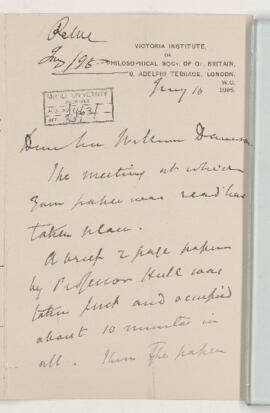 VICTORIA INSTITUTE,
OR
PHILOSOPHICAL SOCY. OF GT. BRITAIN,
8, ADELPHI TERRACE, LONDON,
W.C.
1895.
McGILL UNIVERSITY
ARCHIVES
Dear Sir William Dawson
The meeting at which
your paper was read has
taken place.
A brief 2 page paper
by Professor Hull was
taken first and occupied
about 10 minutes in
all. Then the paper